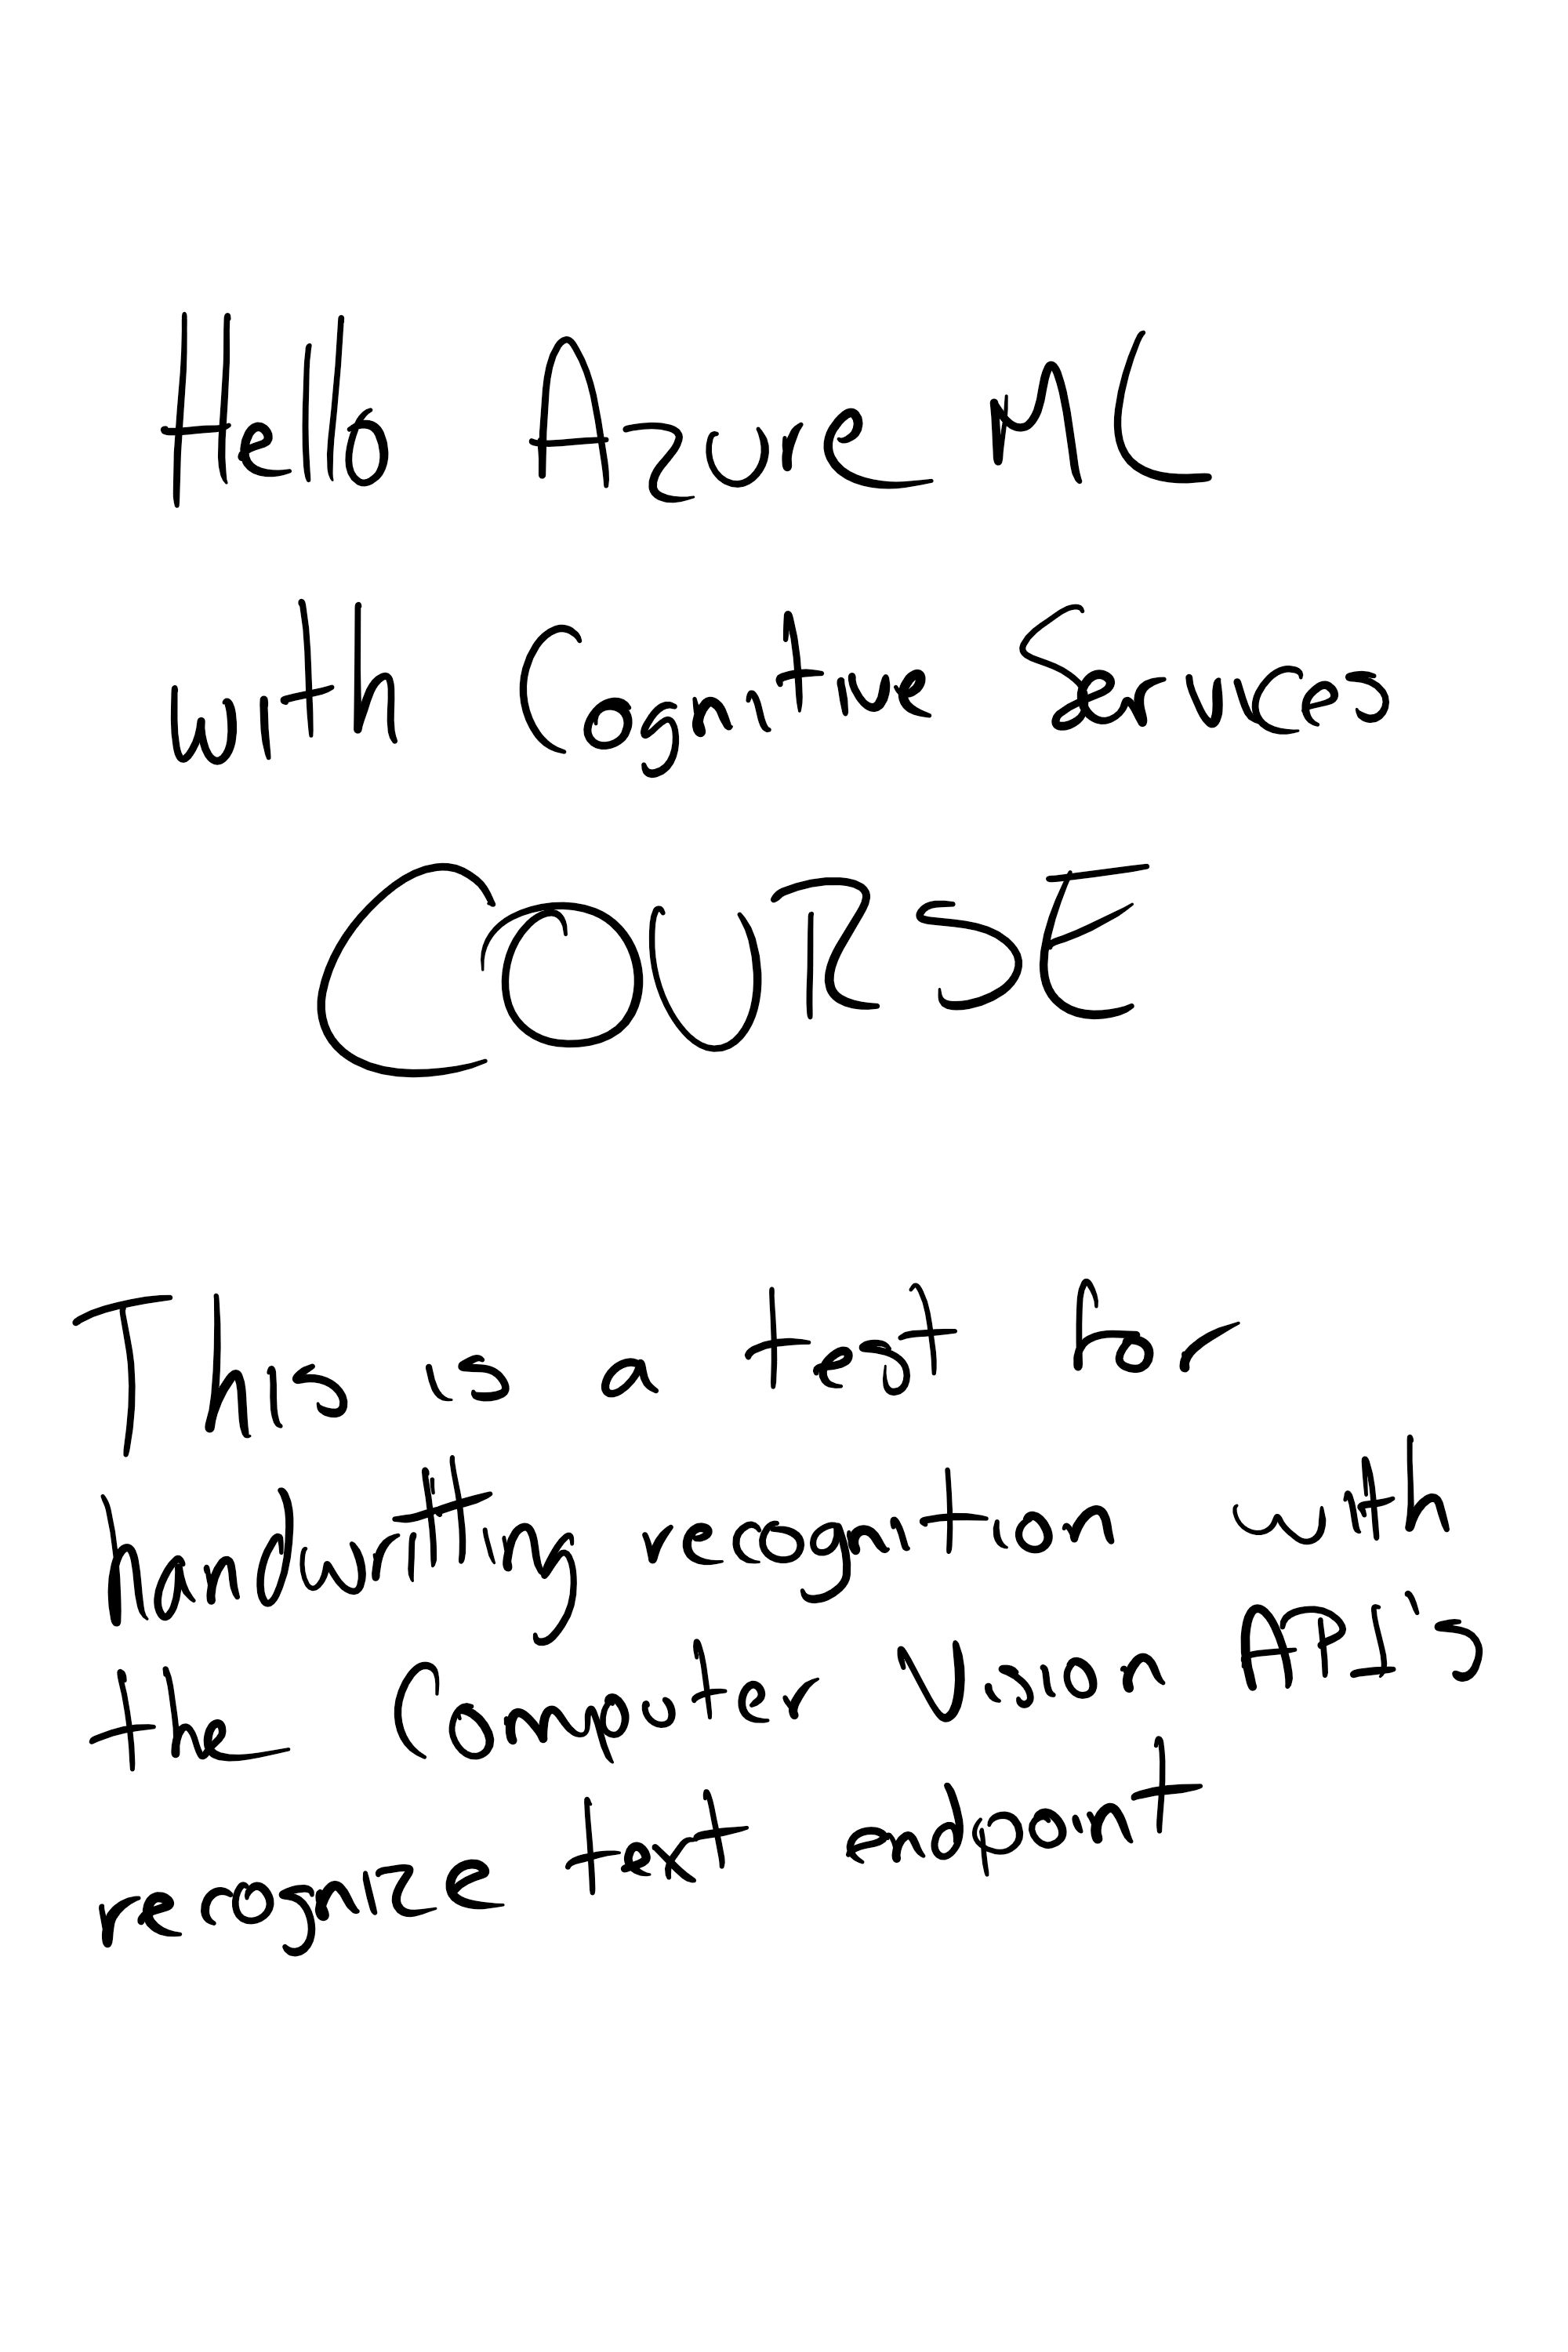 Hello Azure ML
with Cognitive Services
COURSE
This is a test for
handwritting recognition with
the Computer Vision API's
recognize text endpoint